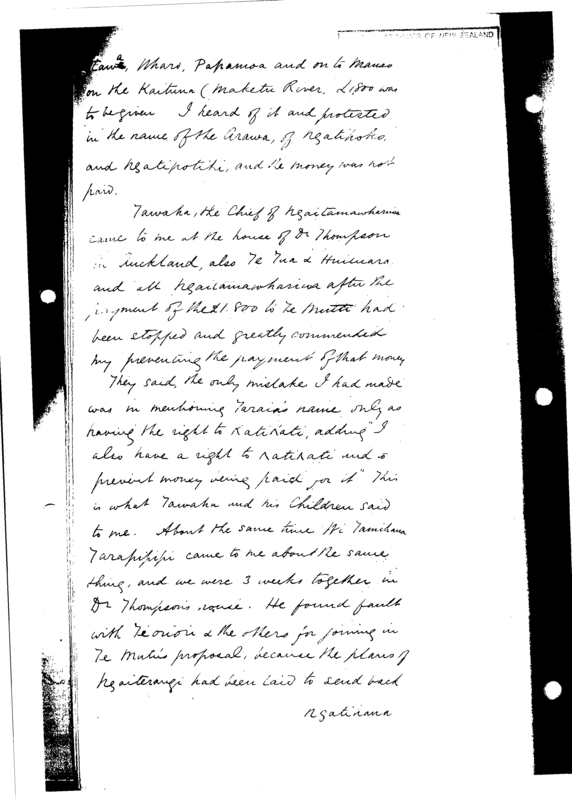 ARCHIVES OF NEW ZEALAND
Wharo, Papamoa and on to
on the Kaituna (Maketu River, £1,800 was
to be given I heard of it and protested
in the name of the Arawa, of
and Ngatipotiki, and the money was not
paid.
Tawaha, the Chief of
came to me at the house of Dr Thompson
in Auckland, also Te Tua &
and all after the
payment of the £1.800 to Te Mutu had
been stopped and greatly commended
my preventing the payment of that money
They said, the only mistake I had made
was in mentioning Taraia's name only as
having the right to Katikati, adding "I
also have a right to Katikati and to
prevent money being paid for it" This
is what Tawaha and his Children said
to me. About the same time Wi Tamihana
Tarapipipi came to me about the same
thing, and we were 3 weeks together in
Dr Thompson's house. He found fault
with & the others for joining in
Te Mutu's proposal, because the plans of
Ngaiterangi had been laid to send back